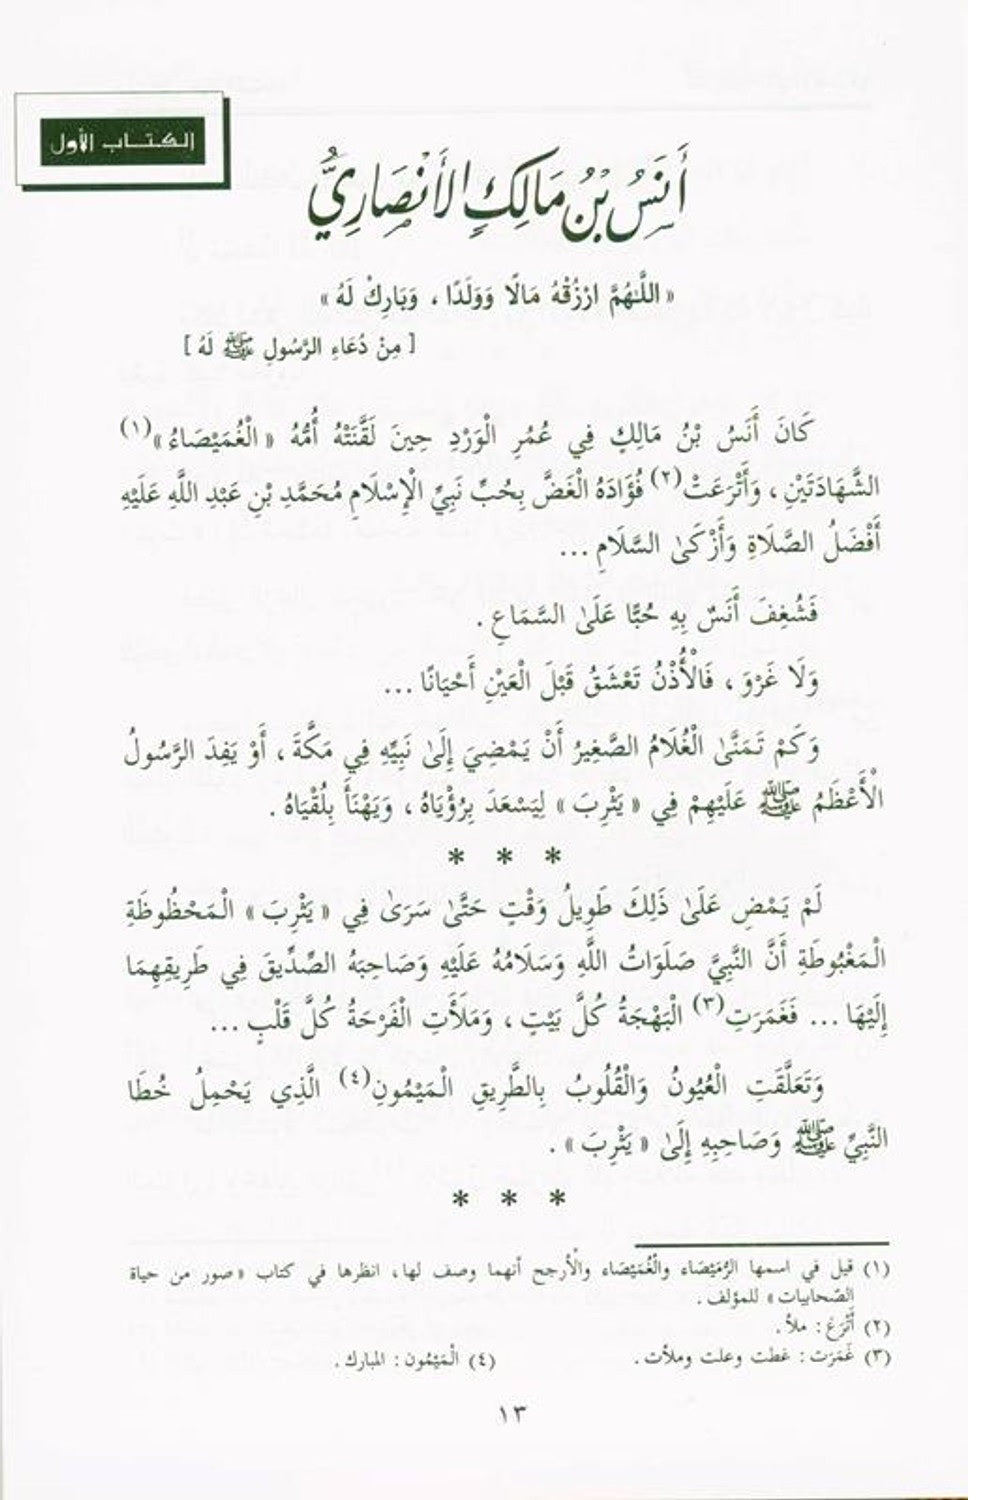 الكتاب الأول
أَنَسُ بْنُ مَالِكٍ الأَنْصَارِيُّ
« اللَّهُمَّ ارْزُقْهُ مَالًا وَوَلَدًا ، وَبَارِكْ لَهُ »
[ مِنْ دُعَاءِ الرَّسُولِ ﷺ لَهُ ]
كَانَ أَنَسُ بْنُ مَالِكٍ فِي عُمُرِ الْوَرْدِ حِينَ لَقَّنَتْهُ أُمُّهُ « الْغُمَيْصَاءُ »(١)
الشَّهَادَتَيْنِ ، وَأَتْرَعَتْ(٢) فُؤَادَهُ الْغَضَّ بِحُبِّ نَبِيِّ الْإِسْلَامِ مُحَمَّدِ بْنِ عَبْدِ اللَّهِ عَلَيْهِ
أَفْضَلُ الصَّلَاةِ وَأَزْكَىٰ السَّلَامِ ...
فَشُغِفَ أَنَسٌ بِهِ حُبًّا عَلَىٰ السَّمَاعِ .
وَلَا غَرْوَ ، فَالْأُذْنُ تَعْشَقُ قَبْلَ الْعَيْنِ أَحْيَانًا ...
وَكَمْ تَمَنَّىٰ الْغُلَامُ الصَّغِيرُ أَنْ يَمْضِيَ إِلَىٰ نَبِيِّهِ فِي مَكَّةَ ، أَوْ يَفِدَ الرَّسُولُ
الْأَعْظَمُ ﷺ عَلَيْهِمْ فِي « يَثْرِبَ » لِيَسْعَدَ بِرُؤْيَاهُ ، وَيَهْنَأَ بِلُقْيَاهُ .
* * *
لَمْ يَمْضِ عَلَىٰ ذَلِكَ طَوِيلُ وَقْتٍ حَتَّىٰ سَرَىٰ فِي « يَثْرِبَ » الْمَحْظُوظَةِ
الْمَغْبُوطَةِ أَنَّ النَّبِيَّ صَلَوَاتُ اللَّهِ وَسَلَامُهُ عَلَيْهِ وَصَاحِبَهُ الصِّدِّيقَ فِي طَرِيقِهِمَا
إِلَيْهَا ... فَغَمَرَتِ(٣) الْبَهْجَةُ كُلَّ بَيْتٍ ، وَمَلَأَتِ الْفَرْحَةُ كُلَّ قَلْبٍ ...
وَتَعَلَّقَتِ الْعُيُونُ وَالْقُلُوبُ بِالطَّرِيقِ الْمَيْمُونِ(٤) الَّذِي يَحْمِلُ خُطَا
النَّبِيِّ ﷺ وَصَاحِبِهِ إِلَىٰ « يَثْرِبَ » .
* * *
(١) قيل في اسمها الرُّمَيْصَاء والْغُمَيْصَاء والْأرجح أنهما وصف لها، انظرها في كتاب « صور من حياة
الصّحابيات » للمؤلف .
(٢) أَتْرَعَ : ملأ .
(٣) غَمَرَت : غطت وعلت وملأت .
(٤) الْمَيْمُون : المبارك .
١٣